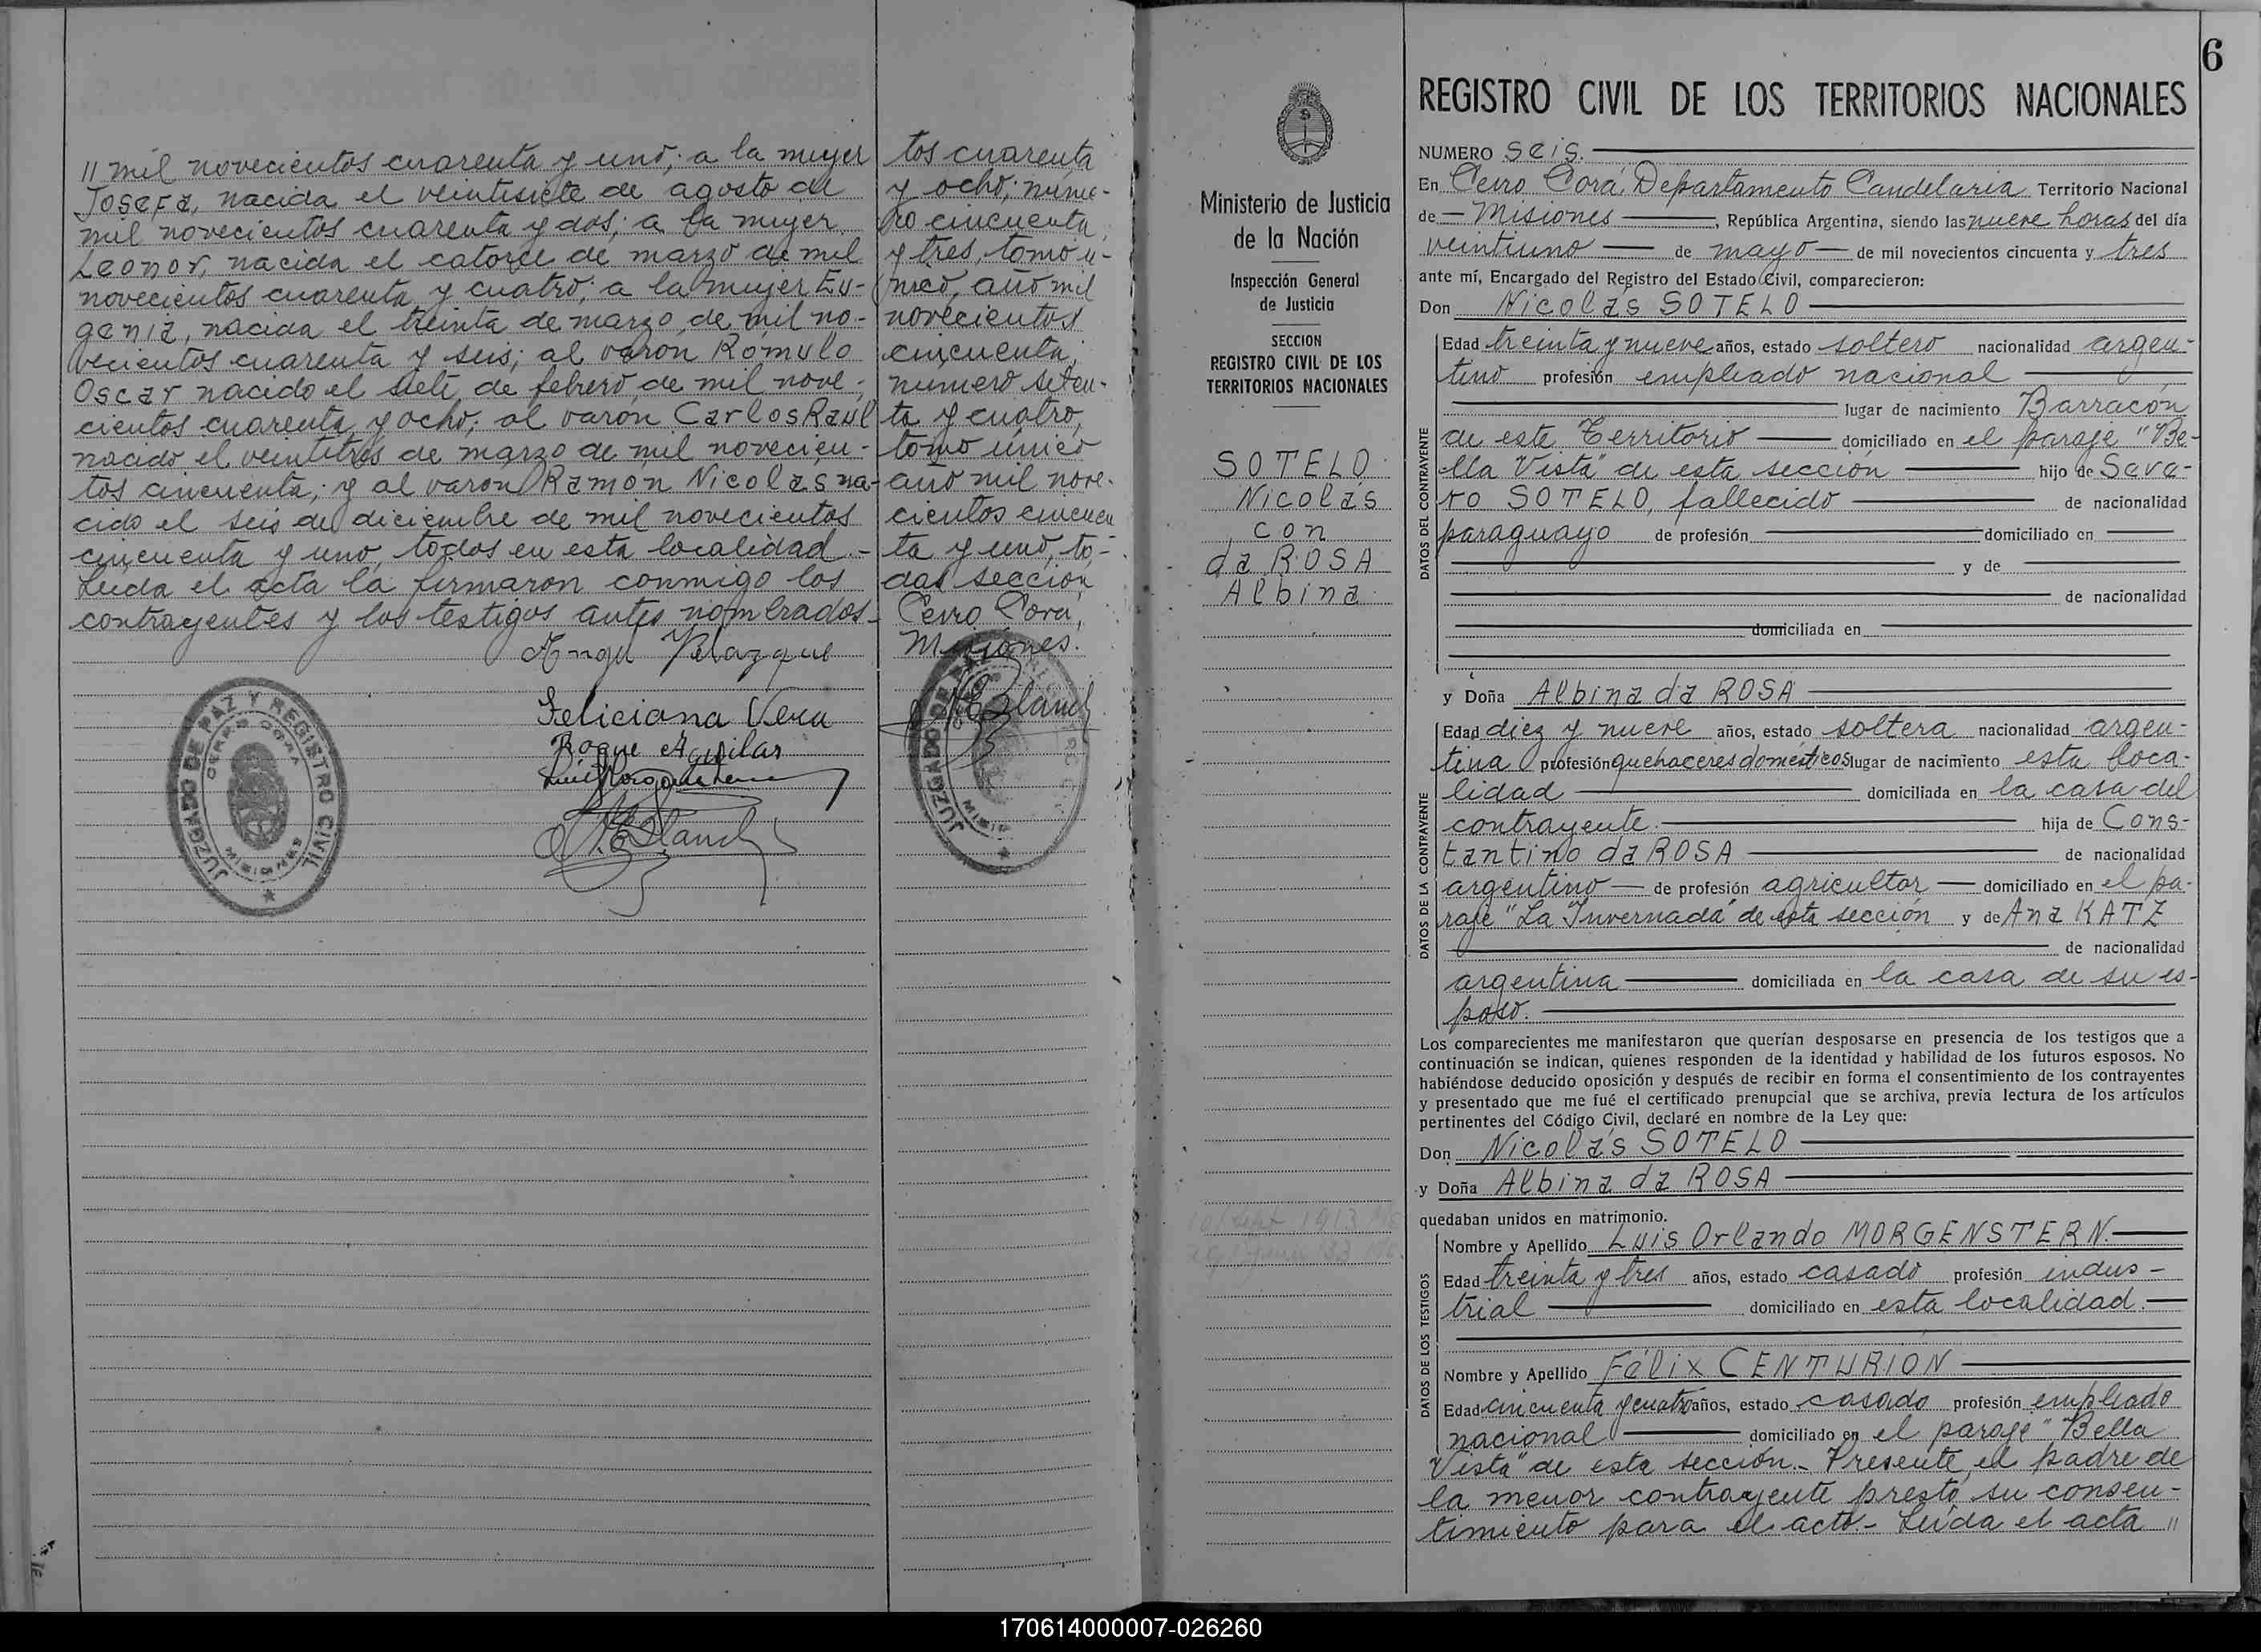 // mil novecientos cuarenta y uno; a la mujer
Josefa, nacida el veintisiete de agosto de
mil novecientos cuarenta y dos; a la mujer
Leonor, nacida el catorce de marzo de mil
novecientos cuarenta y cuatro; a la mujer Eu-
genia, nacida el treinta de marzo de mil no-
vecientos cuarenta y seis; al varon Rómulo
Oscar nacido el siete de febrero de mil nove-
cientos cuarenta y ocho; al varón Carlos Raúl
nacido el veintitres de marzo de mil novecien-
tos cincuenta; y al varon Ramón Nicolas na-
cido el seis de diciembre de mil novecientos
cincuenta y uno, todos en esta localidad.-
Leida el acta la firmaron conmigo los
contrayentes y los testigos antes nombrados.-
Angel Velazque
Feliciana Vera
Roque Aguilar
JUZGADO DE PAZ Y REGISTRO CIVIL
CERRO CORA
MISIONES
tos cuarenta
y ocho; núme-
ro cincuenta
y tres, tomo ú-
nico, año mil
novecientos
cincuenta;
número seten-
ta y cuatro,
tomo único
año mil nove-
cientos cincuen
ta y uno, to-
das sección
Cerro Corá,
Misiones.
JUZGADO DE
Ministerio de Justicia
de la Nación
Inspección General
de Justicia
SECCION
REGISTRO CIVIL DE LOS
TERRITORIOS NACIONALES
SOTELO
Nicolás
con
da ROSA
Albina
6
REGISTRO CIVIL DE LOS TERRITORIOS NACIONALES
NUMERO seis.
En Cerro Corá, Departamento Candelaria Territorio Nacional
de - Misiones , República Argentina, siendo las nueve horas del día
veintiuno de mayo de mil novecientos cincuenta y tres
ante mí, Encargado del Registro del Estado Civil, comparecieron:
Don Nicolás SOTELO
DATOS DEL CONTRAYENTE
Edad treinta y nueve años, estado soltero nacionalidad argen-
tino profesión empleado nacional
lugar de nacimiento Barracón
de este Territorio domiciliado en el paraje "Be-
lla Vista" de esta sección hijo de Sava-
ro SOTELO, fallecido de nacionalidad
paraguayo de profesión domiciliado en
y de
de nacionalidad
domiciliada en
y Doña Albina da ROSA
DATOS DE LA CONTRAYENTE
Edad diez y nueve años, estado soltera nacionalidad argen-
tina profesión quehaceres domésticos lugar de nacimiento esta loca-
lidad domiciliada en la casa del
contrayente. hija de Cons-
tantino da ROSA de nacionalidad
argentino de profesión agricultor domiciliado en el pa-
raje "La Invernada" de esta sección y de Ana KATZ
de nacionalidad
argentina domiciliada en la casa de su es-
poso.
Los comparecientes me manifestaron que querían desposarse en presencia de los testigos que a
continuación se indican, quienes responden de la identidad y habilidad de los futuros esposos. No
habiéndose deducido oposición y después de recibir en forma el consentimiento de los contrayentes
y presentado que me fué el certificado prenupcial que se archiva, previa lectura de los artículos
pertinentes del Código Civil, declaré en nombre de la Ley que:
Don Nicolás SOTELO
y Doña Albina da ROSA
quedaban unidos en matrimonio.
DATOS DE LOS TESTIGOS
Nombre y Apellido Luis Orlando MORGENSTERN.
Edad treinta y tres años, estado casado profesión indus-
trial domiciliado en esta localidad.
Nombre y Apellido Félix CENTURION
Edad cincuenta y cuatro años, estado casado profesión empleado
nacional domiciliado en el paraje "Bella
Vista" de esta sección.- Presente el padre de
la menor contrayente prestó su consen-
timiento para el acto.- Leida el acta //
170614000007-026260